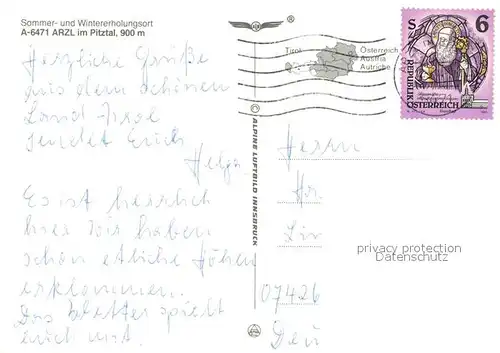 Sommer- und Wintererholungsort
A-6471 ARZL im Pitztal, 900 m
Herzliche Grüße
aus dem schönen
Land Tirol
sendet Euch
Helga
Es ist herrlich
hier wir haben
schon etliche Höhen
erklommen.
Das Wetter spielt
auch mit.
®
ALPINE LUFTBILD INNSBRUCK
Tirol
Österreich
Austria
Autriche
S 6
REPUBLIK
ÖSTERREICH
Herrn
privacy protection
Datenschutz
07426